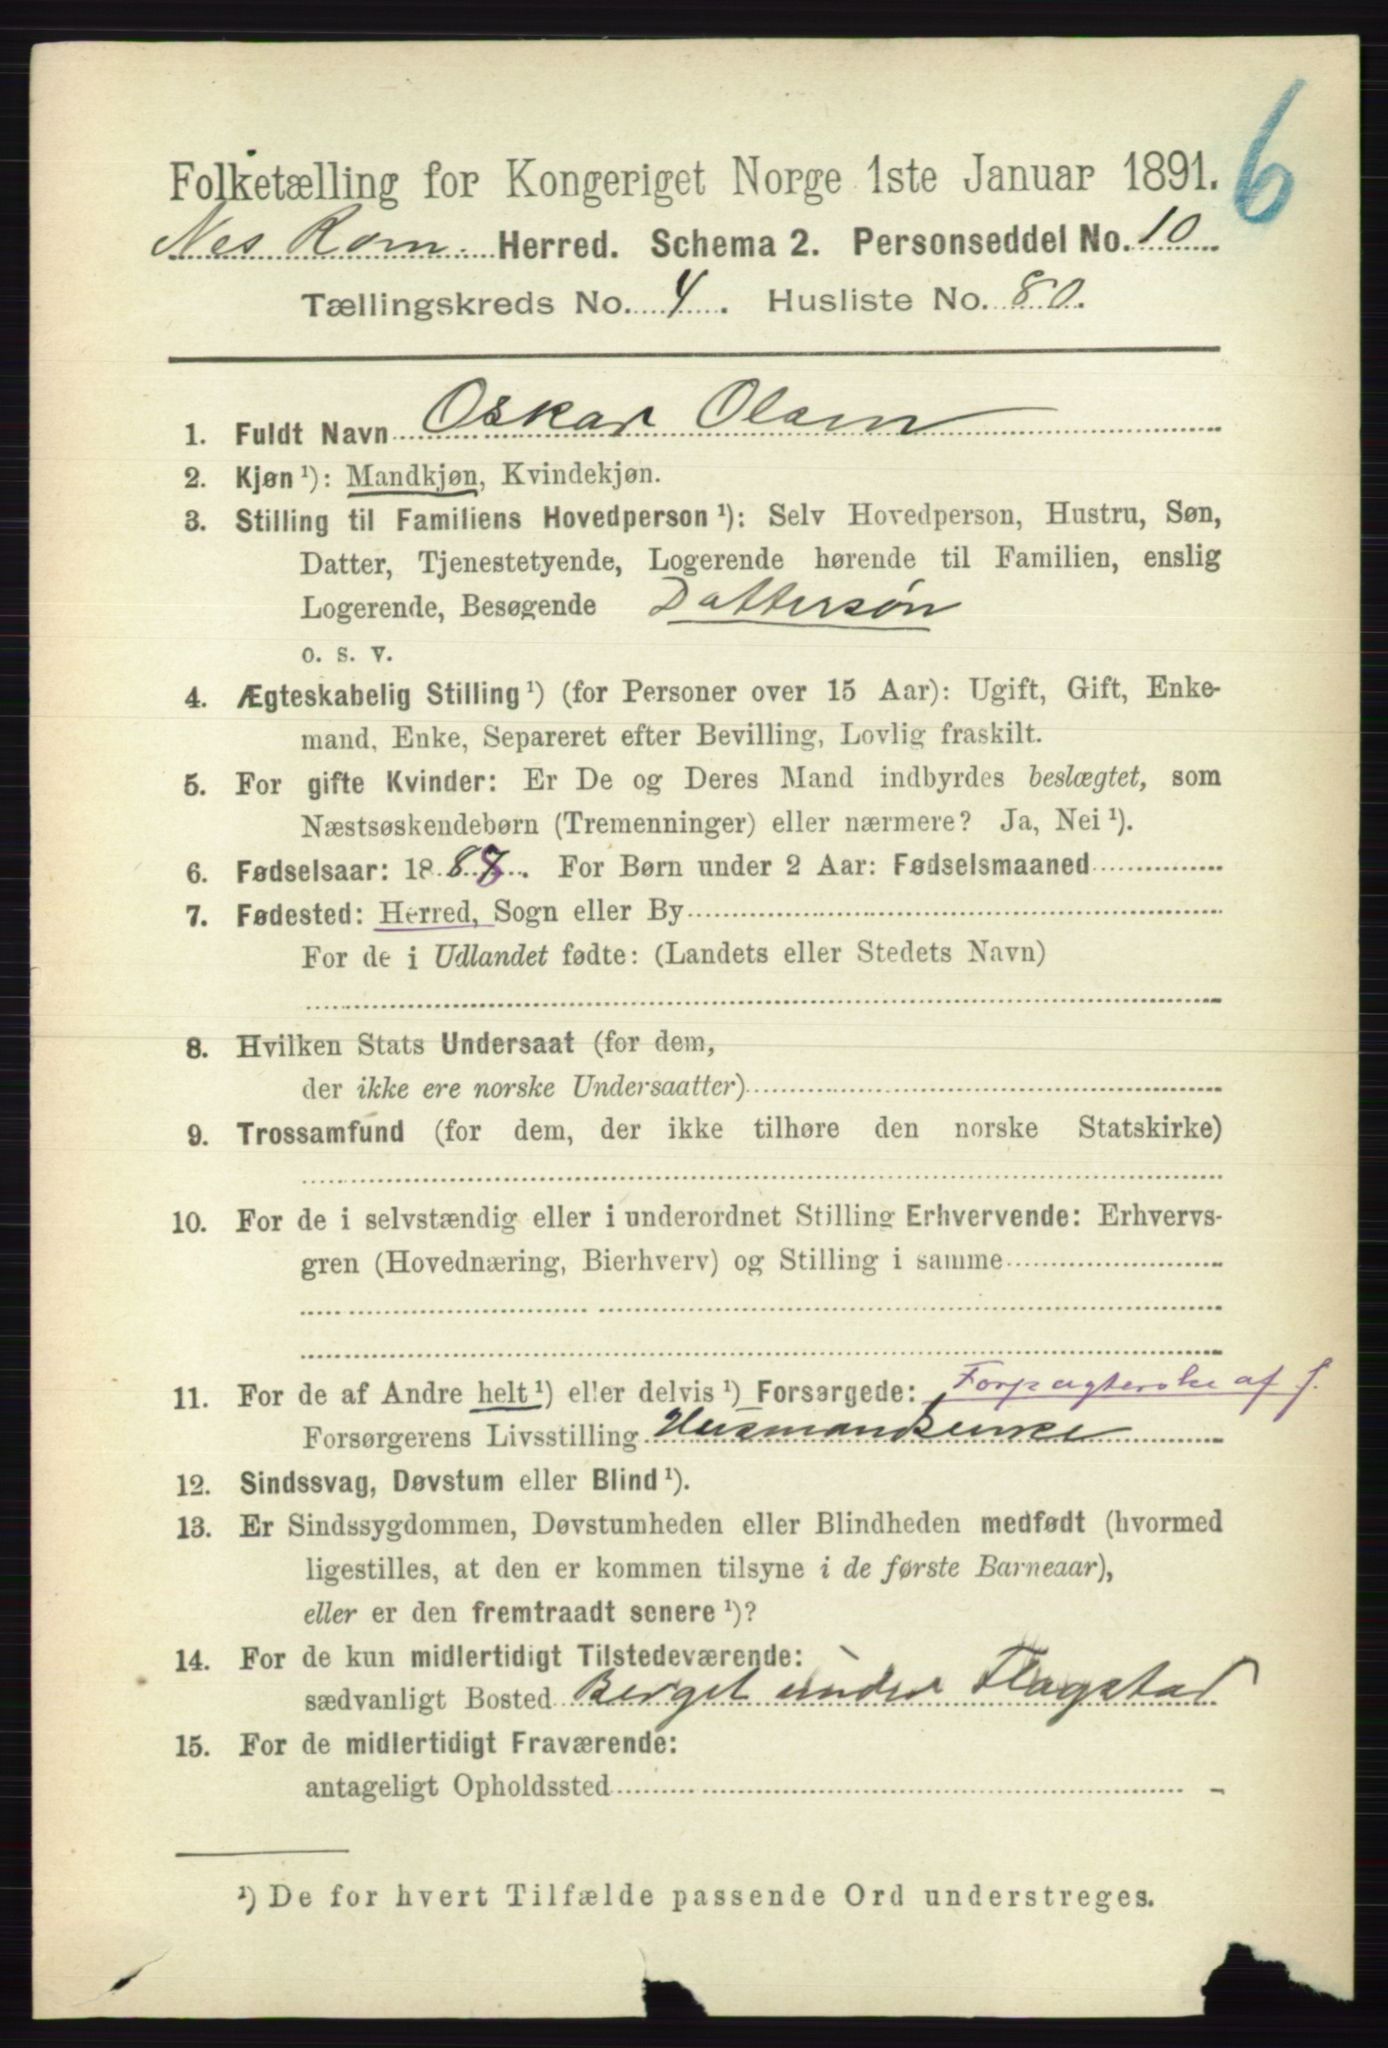 6
Folketælling for Kongeriget Norge 1ste Januar 1891.
Nes Rom. Herred. Schema 2. Personseddel No. 10
Tællingskreds No. 4. Husliste No. 80.
1. Fuldt Navn Oskar Olsen
2. Kjøn¹): Mandkjøn, Kvindekjøn.
3. Stilling til Familiens Hovedperson¹): Selv Hovedperson, Hustru, Søn,
Datter, Tjenestetyende, Logerende hørende til Familien, enslig
Logerende, Besøgende Dattersøn
o. s. v.
4. Ægteskabelig Stilling¹) (for Personer over 15 Aar): Ugift, Gift, Enke-
mand, Enke, Separeret efter Bevilling, Lovlig fraskilt.
5. For gifte Kvinder: Er De og Deres Mand indbyrdes beslægtet, som
Næstsøskendebørn (Tremenninger) eller nærmere? Ja, Nei¹).
6. Fødselsaar: 188. For Børn under 2 Aar: Fødselsmaaned
7. Fødested: Herred, Sogn eller By
For de i Udlandet fødte: (Landets eller Stedets Navn)
8. Hvilken Stats Undersaat (for dem,
der ikke ere norske Undersaatter)
9. Trossamfund (for dem, der ikke tilhøre den norske Statskirke)
10. For de i selvstændig eller i underordnet Stilling Erhvervende: Erhvervs-
gren (Hovednæring, Bierhverv) og Stilling i samme
11. For de af Andre helt¹) eller delvis¹) Forsørgede: Forpagterske af J.
Forsørgerens Livsstilling Husmandsenke
12. Sindssvag, Døvstum eller Blind¹).
13. Er Sindssygdommen, Døvstumheden eller Blindheden medfødt (hvormed
ligestilles, at den er kommen tilsyne i de første Barneaar),
eller er den fremtraadt senere¹)?
14. For de kun midlertidigt Tilstedeværende:
sædvanligt Bosted Berget under Flagstad
15. For de midlertidigt Fraværende:
antageligt Opholdssted
¹) De for hvert Tilfælde passende Ord understreges.